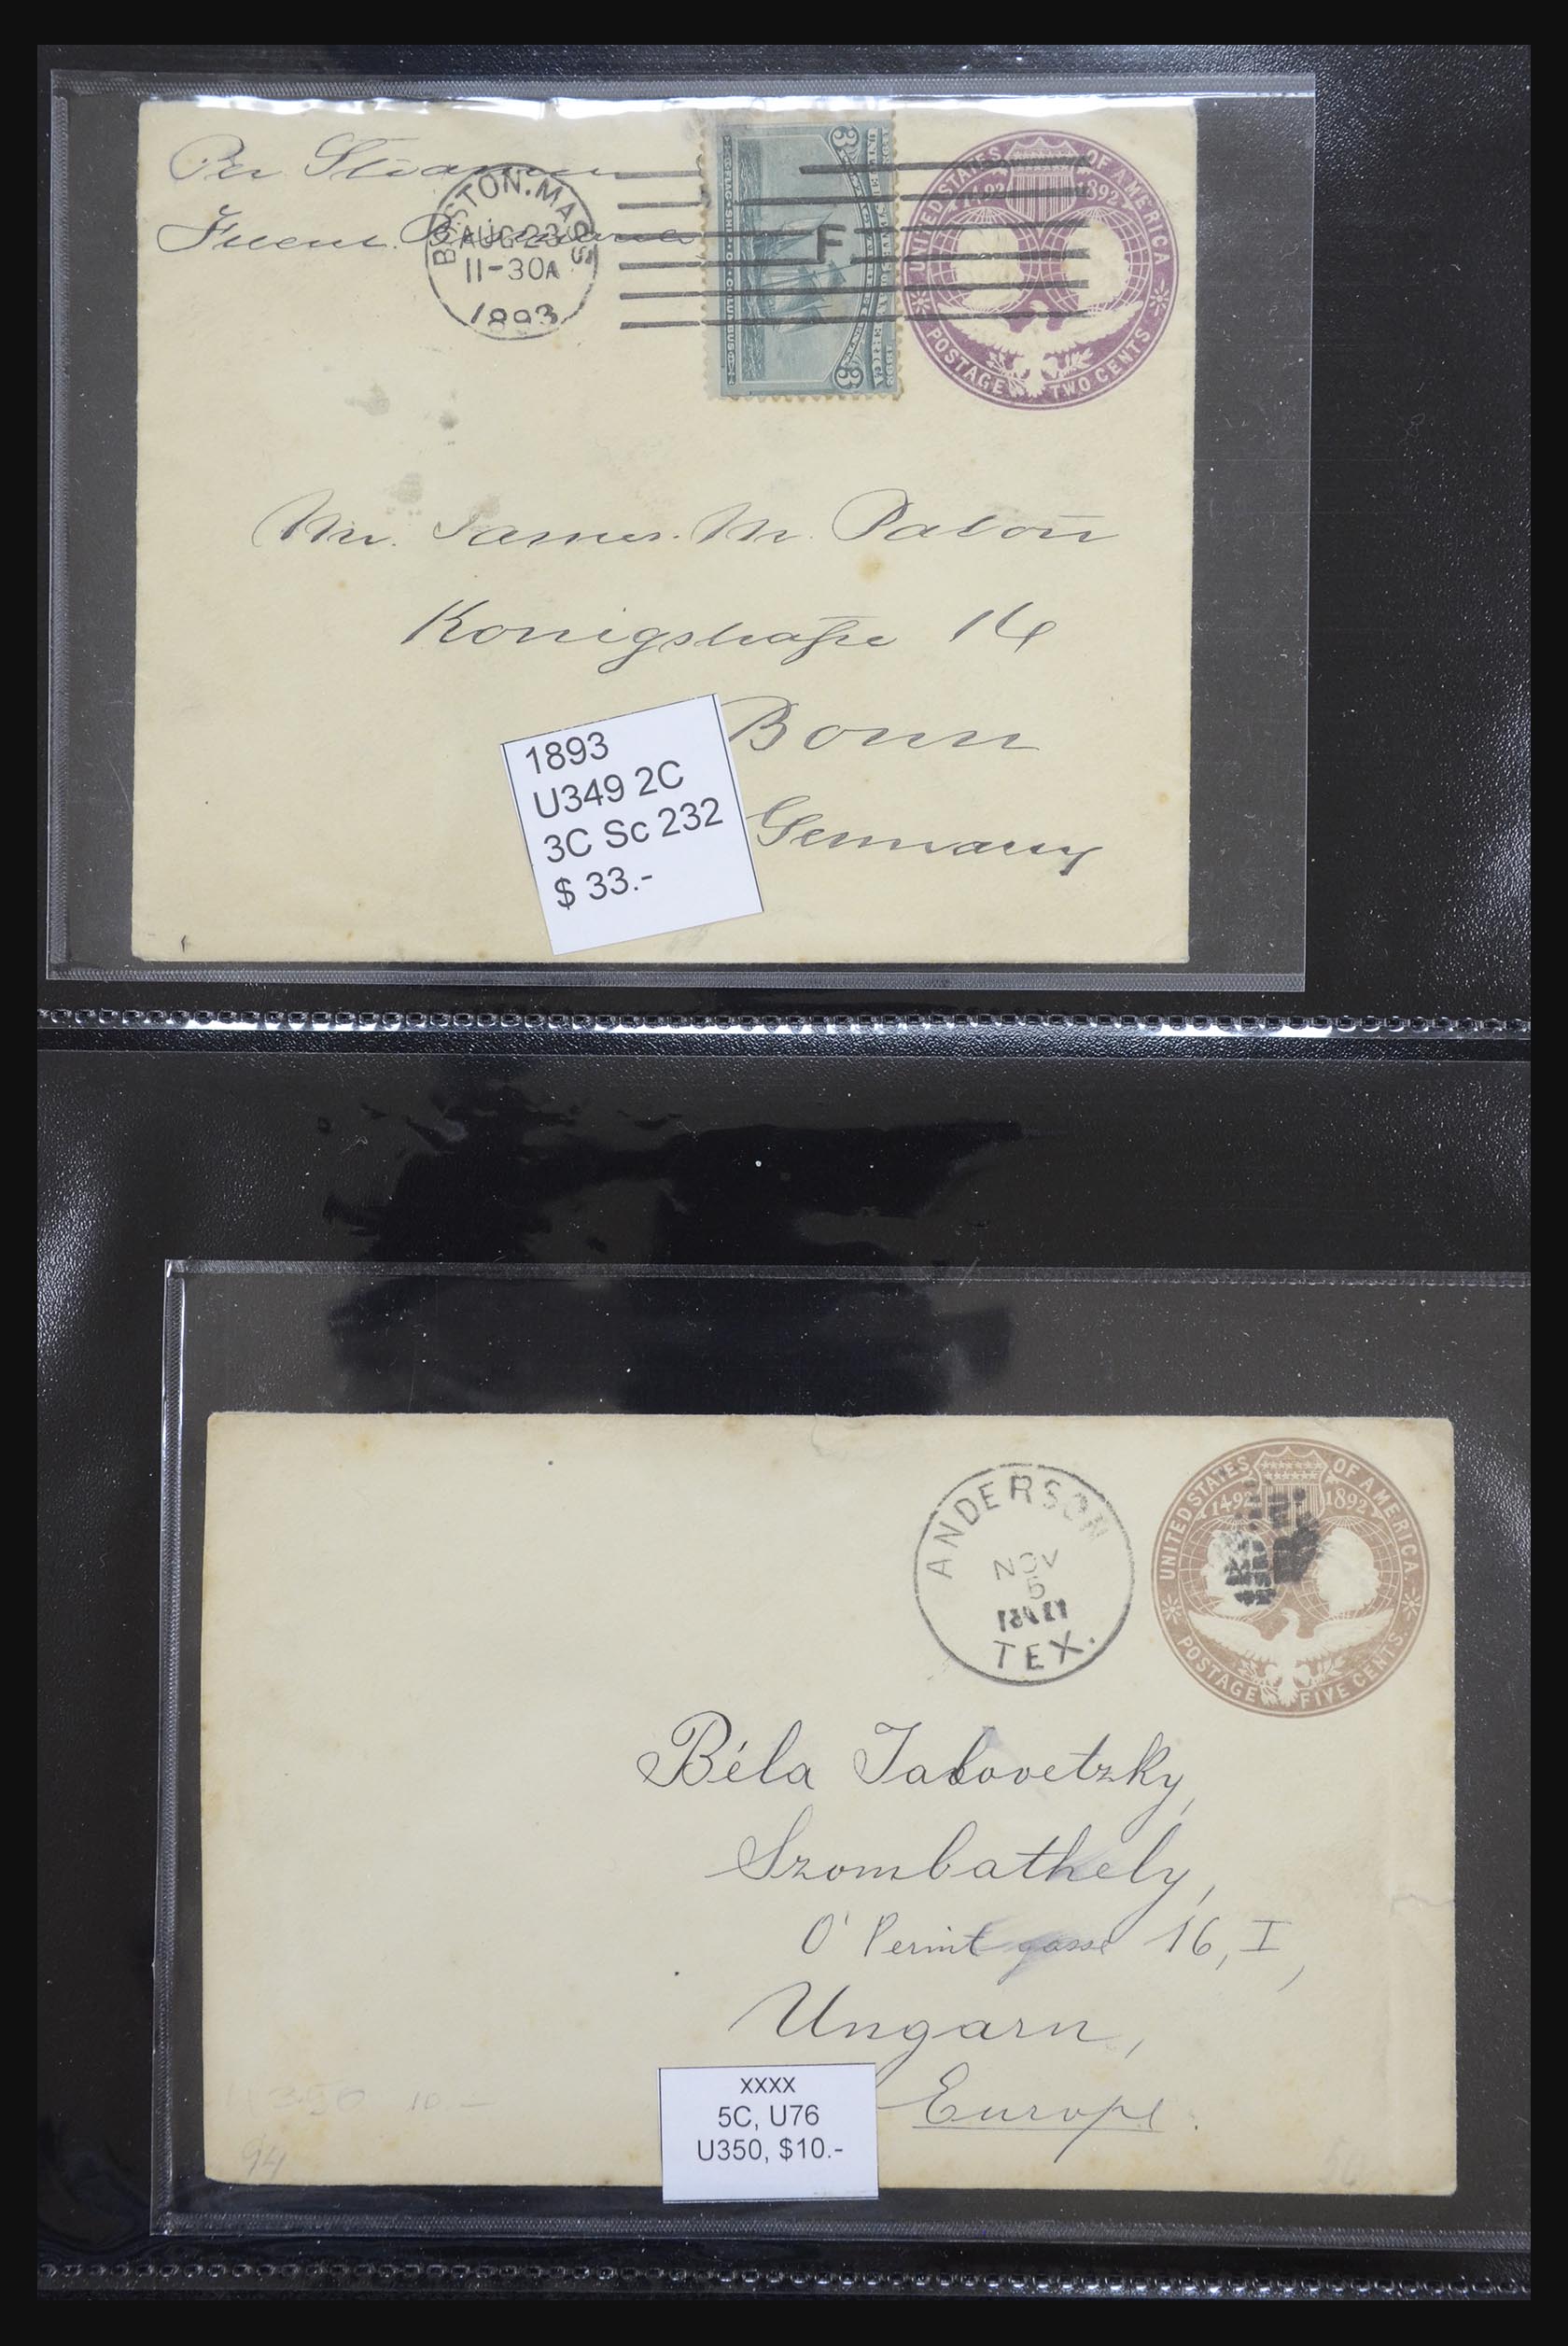 Per Steamer
BOSTON. MASS
AUG 23
11-30A
1893
F
UNITED STATES OF AMERICA
1492 1892
POSTAGE TWO CENTS
3
3
FLAG SHIP OF COLUMBUS
Mr. James. M. Paton
Konigstraße 14
Bonn
Germany
1893
U349 2C
3C Sc 232
$ 33.-
ANDERSON
NOV
5
TEX.
UNITED STATES OF AMERICA
1492 1892
POSTAGE FIVE CENTS
Béla
Szombathely,
16, I,
Ungarn,
Europe.
xxxx
5C, U76
U350, $10.-
350 10 -
94
50